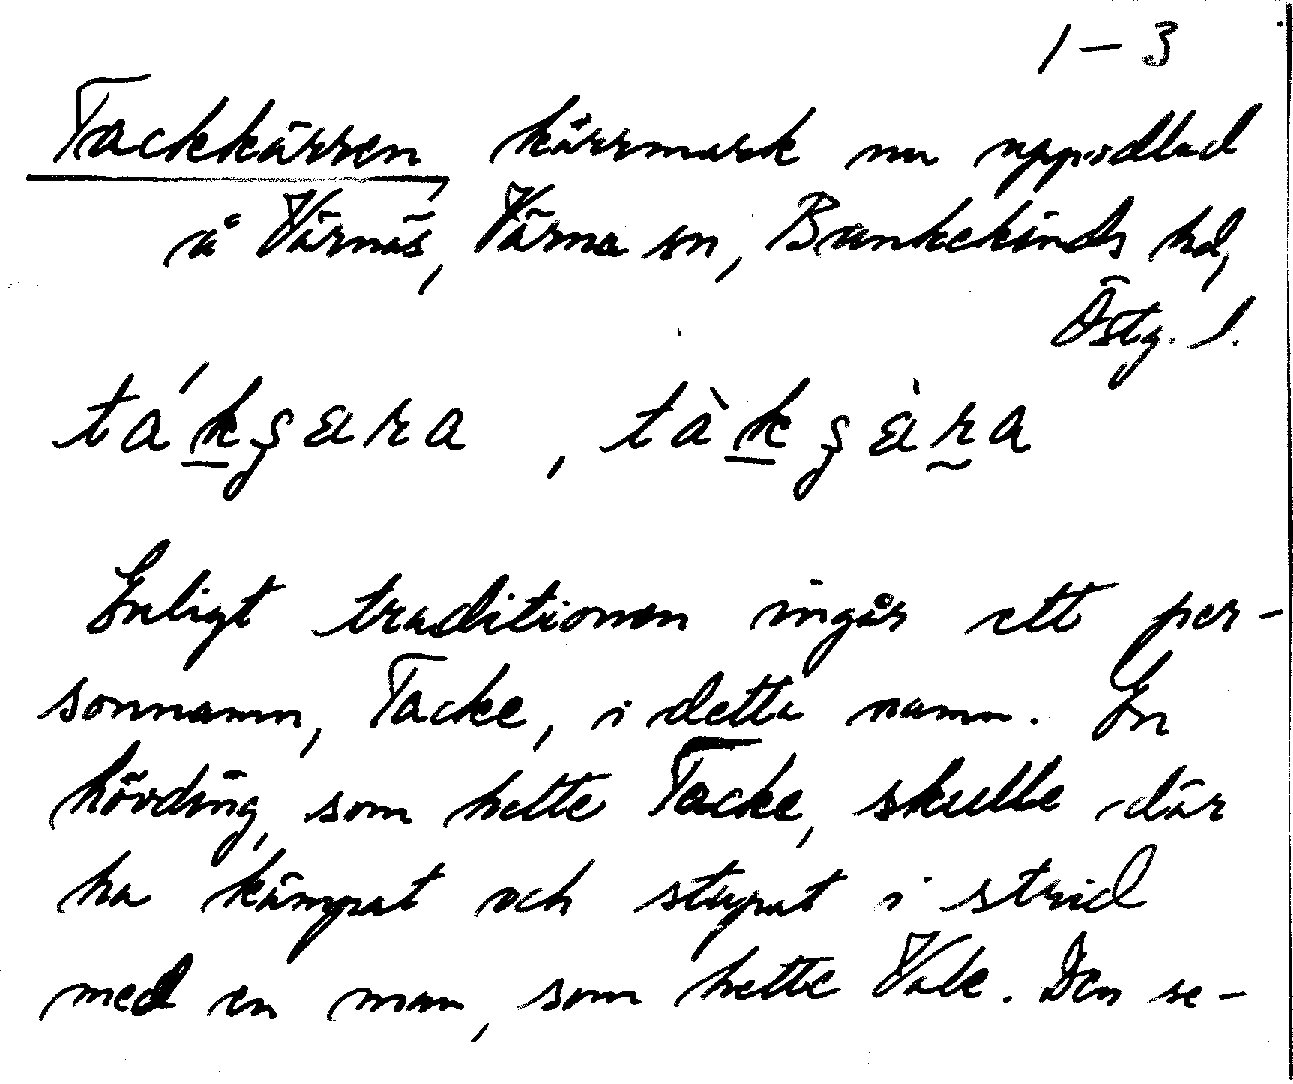 1-3
Tackkärren kärrmark nu uppodlad
å Värnäs, Värna sn, Bankekinds hd,
Östg. l.
Enligt traditionen ingår ett per-
sonnamn, Tacke, i detta namn. En
hövding, som hette Tacke, skulle där
ha kämpat och stupat i strid
med en man, som hette Vale. Den se-